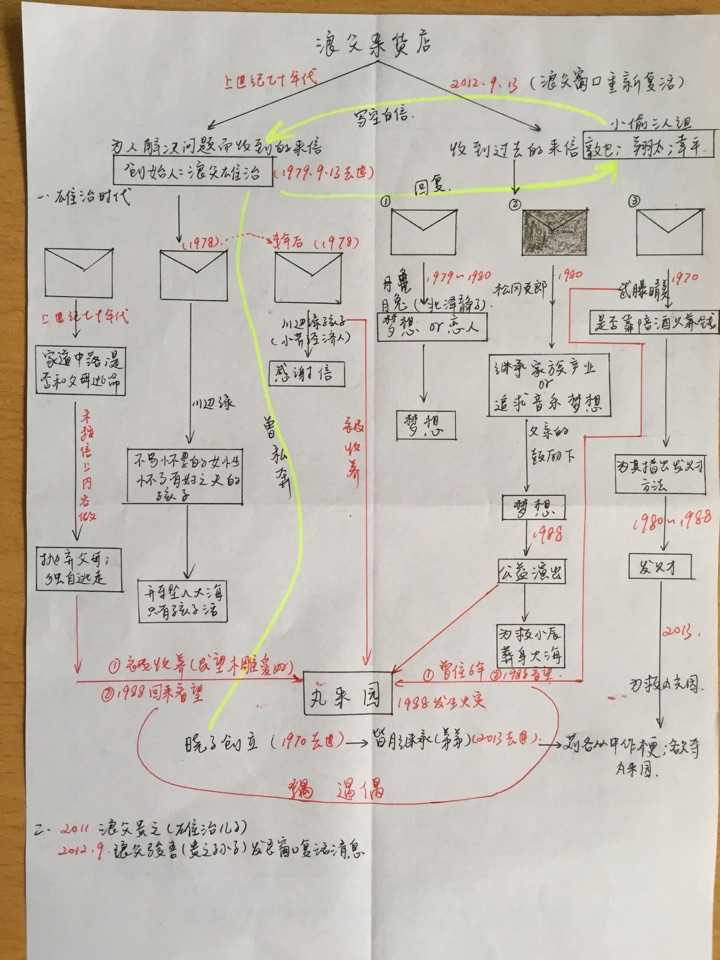 浪父杂货店
上世纪七十年代
2012.9.13 (浪父窗口重新复活)
写空白信
小偷三人组
为人解决问题而收到的来信
收到过去的来信
敦也; 翔太; 幸平
创始人:浪父雄治
(1979.9.13去世)
回复
一、雄治时代
①
②
③
(1978)
(1978)
上世纪七十年代
月兔 (北泽静子)
1979~1980
松冈克郎
1980
武藤晴美
1970
川边绿孩子
(小芹经济人)
梦想 or 恋人
是否靠陪酒父养钱
家道中落,是
否和父母逃命
感谢信
继承家族产业
or
追求音乐梦想
川边绿
曾私奔
被收养
梦想
父亲的
鼓励下
未按信上内容做
怀了有妇之夫的
孩子
为其指出发财
方法
梦想
1988
1980~1988
抛弃父母;
独自逃走
公益演出
发财
开车坠入大海
只有孩子活
为救小辰
葬身大海
2013
①被收养(
②1988回来看望
丸来园
①曾住6年 ②1988看望
1988发生火灾
为救丸光园
晓子创立 (1970去世)
皆月继承(弟弟)(2013去世)
苅谷从中作梗;欲夺
丸来园
遇偶
二、2011 浪父贵之(雄治儿子)
2012.9 浪父骏吾(贵之孙子)发息窗口复活消息